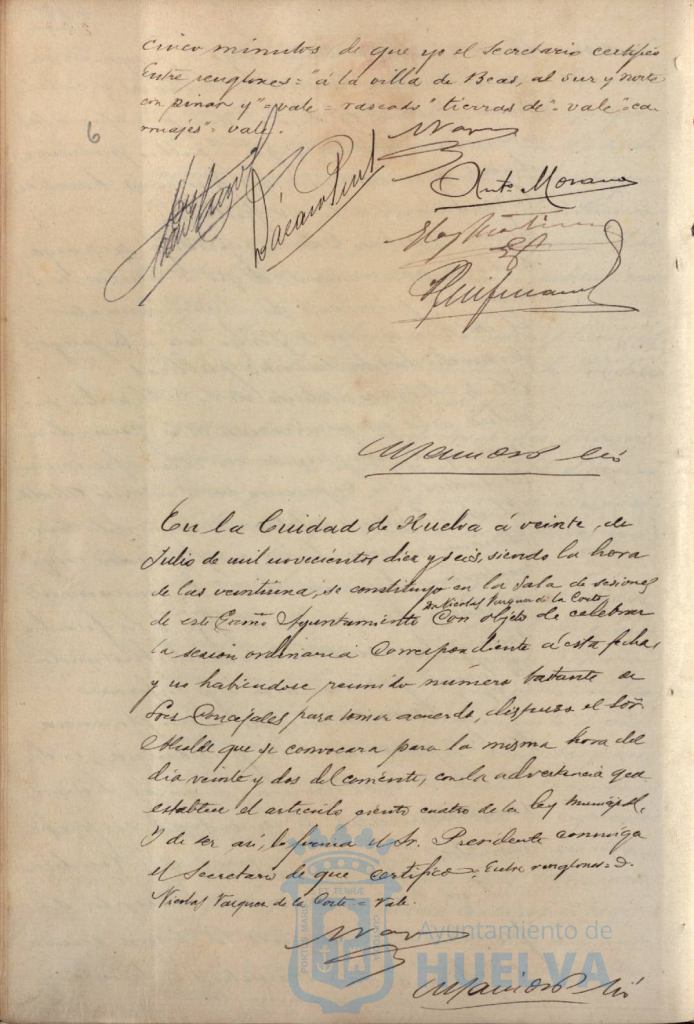 cinco minutos de que yo el Secretario certifico
Entre renglones = "á la villa de Beas, al sur y norte
con pinar y" = vale = rascado "tierras de" = vale "ca
rruajes" = vale.
6
Anto Morano
En la Ciudad de Huelva á veinte, de
Julio de mil novecientos diez y seis, siendo la hora
de las veintiuna, se constituyó en la Sala de sesiones
Dn Nicolas Vazquez de la Corte
de este Excmo Ayuntamiento con objeto de celebrar
la sesion ordinaria correspondiente á esta fecha,
y no habiendose reunido número bastante de
Sres Concejales para tomar acuerdo, dispuso el Sor
Alcalde que se convocara para la misma hora del
dia veinte y dos del corriente, con la advertencia que
establece el articulo ciento cuatro de la ley municipal.
Y de ser asi, lo firma el Sr. Presidente conmigo
el Secretario de que certifico. Entre renglones = D.
Nicolas Vazquez de la Corte = Vale.
PORTUS MARIS ET TERRÆ CUSTODIA
Ayuntamiento de
HUELVA